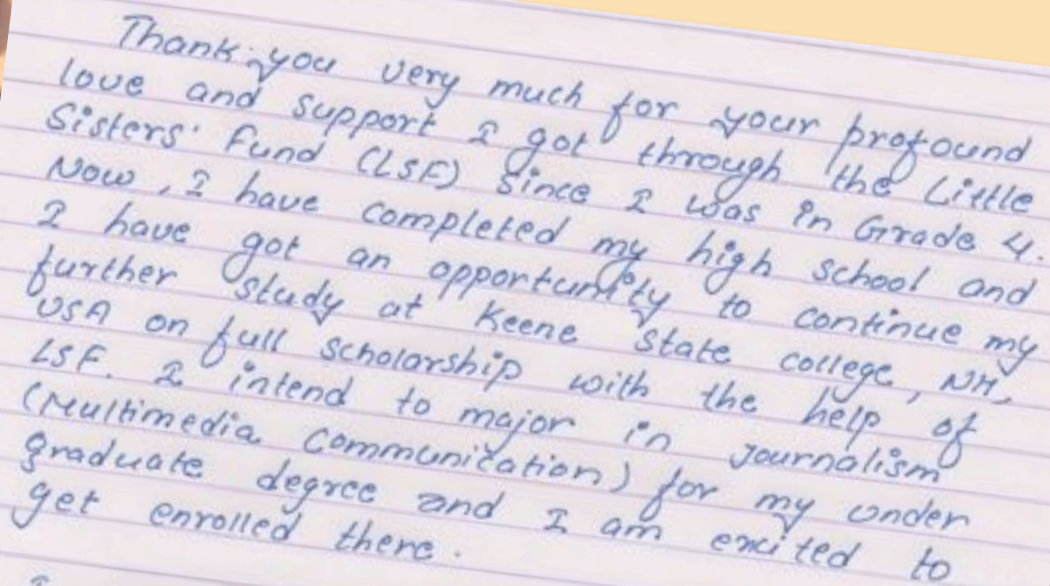 Thank you very much for your profound
love and support I got through the Little
Sisters' Fund (LSF) since I was in Grade 4.
Now, I have completed my high school and
I have got an opportunity to continue my
further study at Keene State college, NH,
USA on full scholarship with the help of
LSF. I intend to major in Journalism
(Multimedia Communication) for my under
graduate degree and I am excited to
get enrolled there.